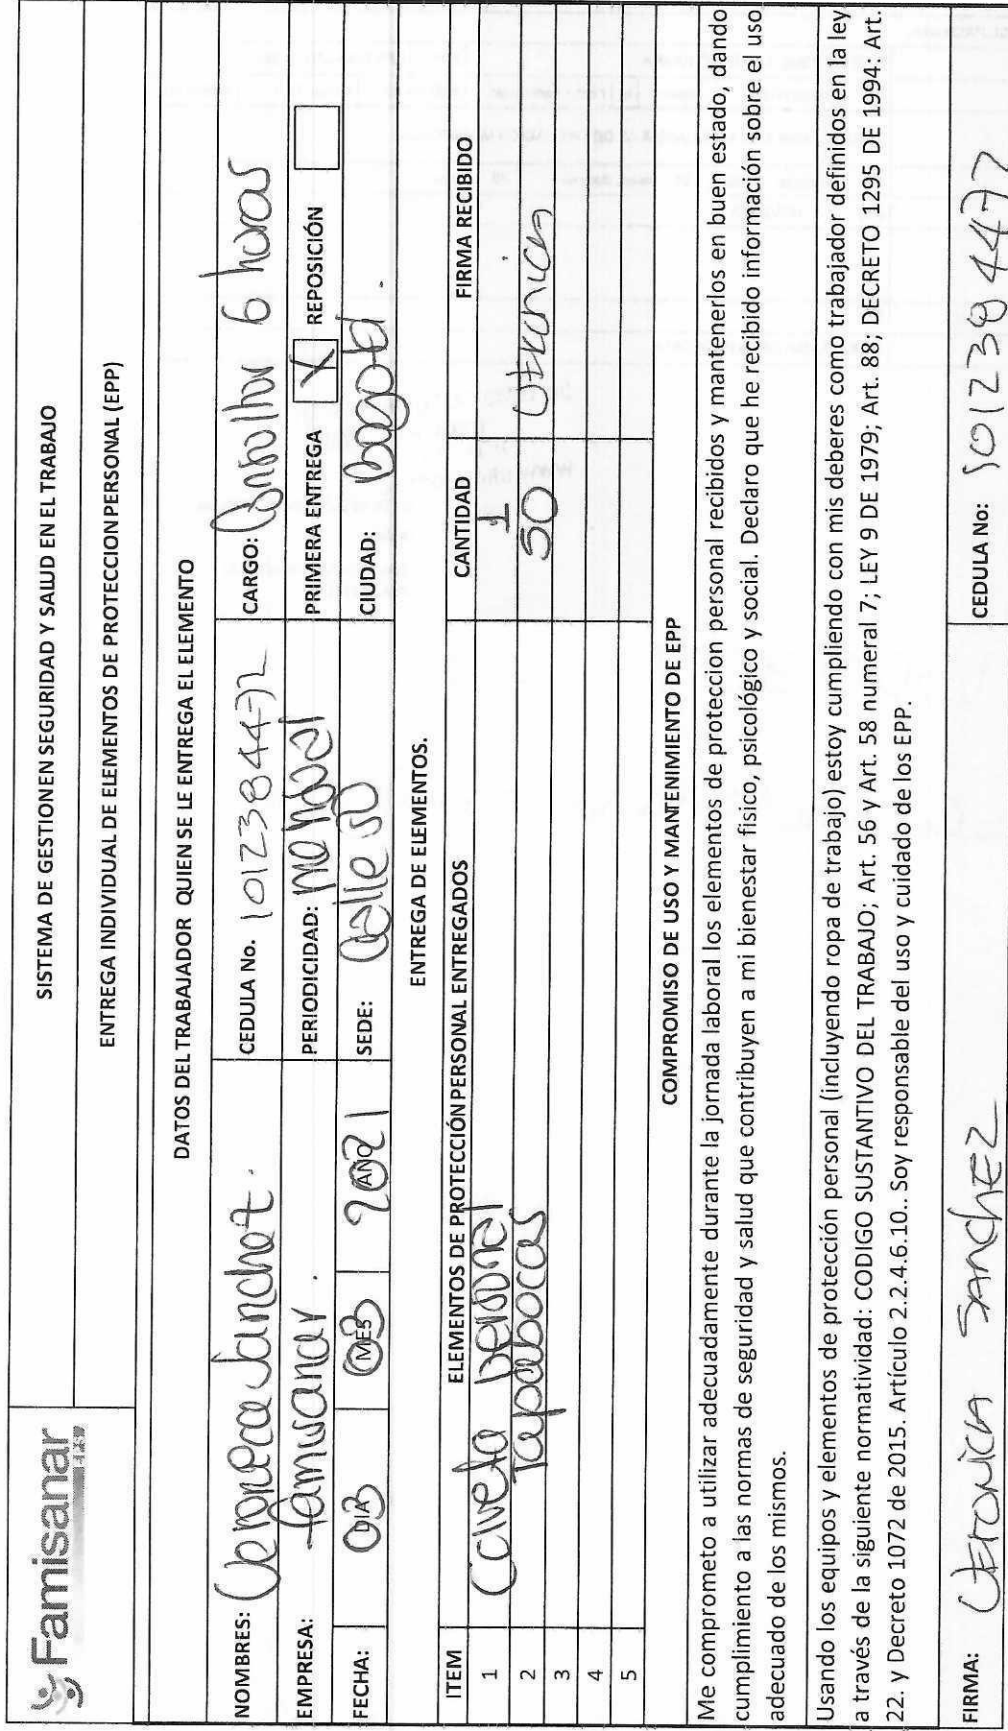 Famisanar EPS
SISTEMA DE GESTION EN SEGURIDAD Y SALUD EN EL TRABAJO
ENTREGA INDIVIDUAL DE ELEMENTOS DE PROTECCION PERSONAL (EPP)
DATOS DEL TRABAJADOR QUIEN SE LE ENTREGA EL ELEMENTO
NOMBRES: Veronica Sanchez. CEDULA No. 1012384472 CARGO: Consultor 6 horas
EMPRESA: famisanar. PERIODICIDAD: mensual PRIMERA ENTREGA X REPOSICIÓN
FECHA: DIA 03 MES 03 AÑO 2021 SEDE: Calle CIUDAD: Bogotá.
ENTREGA DE ELEMENTOS.
ITEM ELEMENTOS DE PROTECCIÓN PERSONAL ENTREGADOS CANTIDAD FIRMA RECIBIDO
1 Careta Personal 1
2 Tapabocas 50 Veronica
3
4
5
COMPROMISO DE USO Y MANTENIMIENTO DE EPP
Me comprometo a utilizar adecuadamente durante la jornada laboral los elementos de proteccion personal recibidos y mantenerlos en buen estado, dando
cumplimiento a las normas de seguridad y salud que contribuyen a mi bienestar fisico, psicológico y social. Declaro que he recibido información sobre el uso
adecuado de los mismos.
Usando los equipos y elementos de protección personal (incluyendo ropa de trabajo) estoy cumpliendo con mis deberes como trabajador definidos en la ley
a través de la siguiente normatividad: CODIGO SUSTANTIVO DEL TRABAJO; Art. 56 y Art. 58 numeral 7; LEY 9 DE 1979; Art. 88; DECRETO 1295 DE 1994: Art.
22. y Decreto 1072 de 2015. Artículo 2.2.4.6.10.. Soy responsable del uso y cuidado de los EPP.
FIRMA: VERONICA SANCHEZ CEDULA No: 1012384472